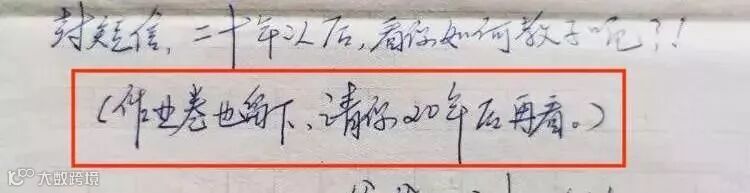 封短信,二十年以后,看你如何教子呢?!
(作业卷也留下、请你20年后再看。)
大数跨境